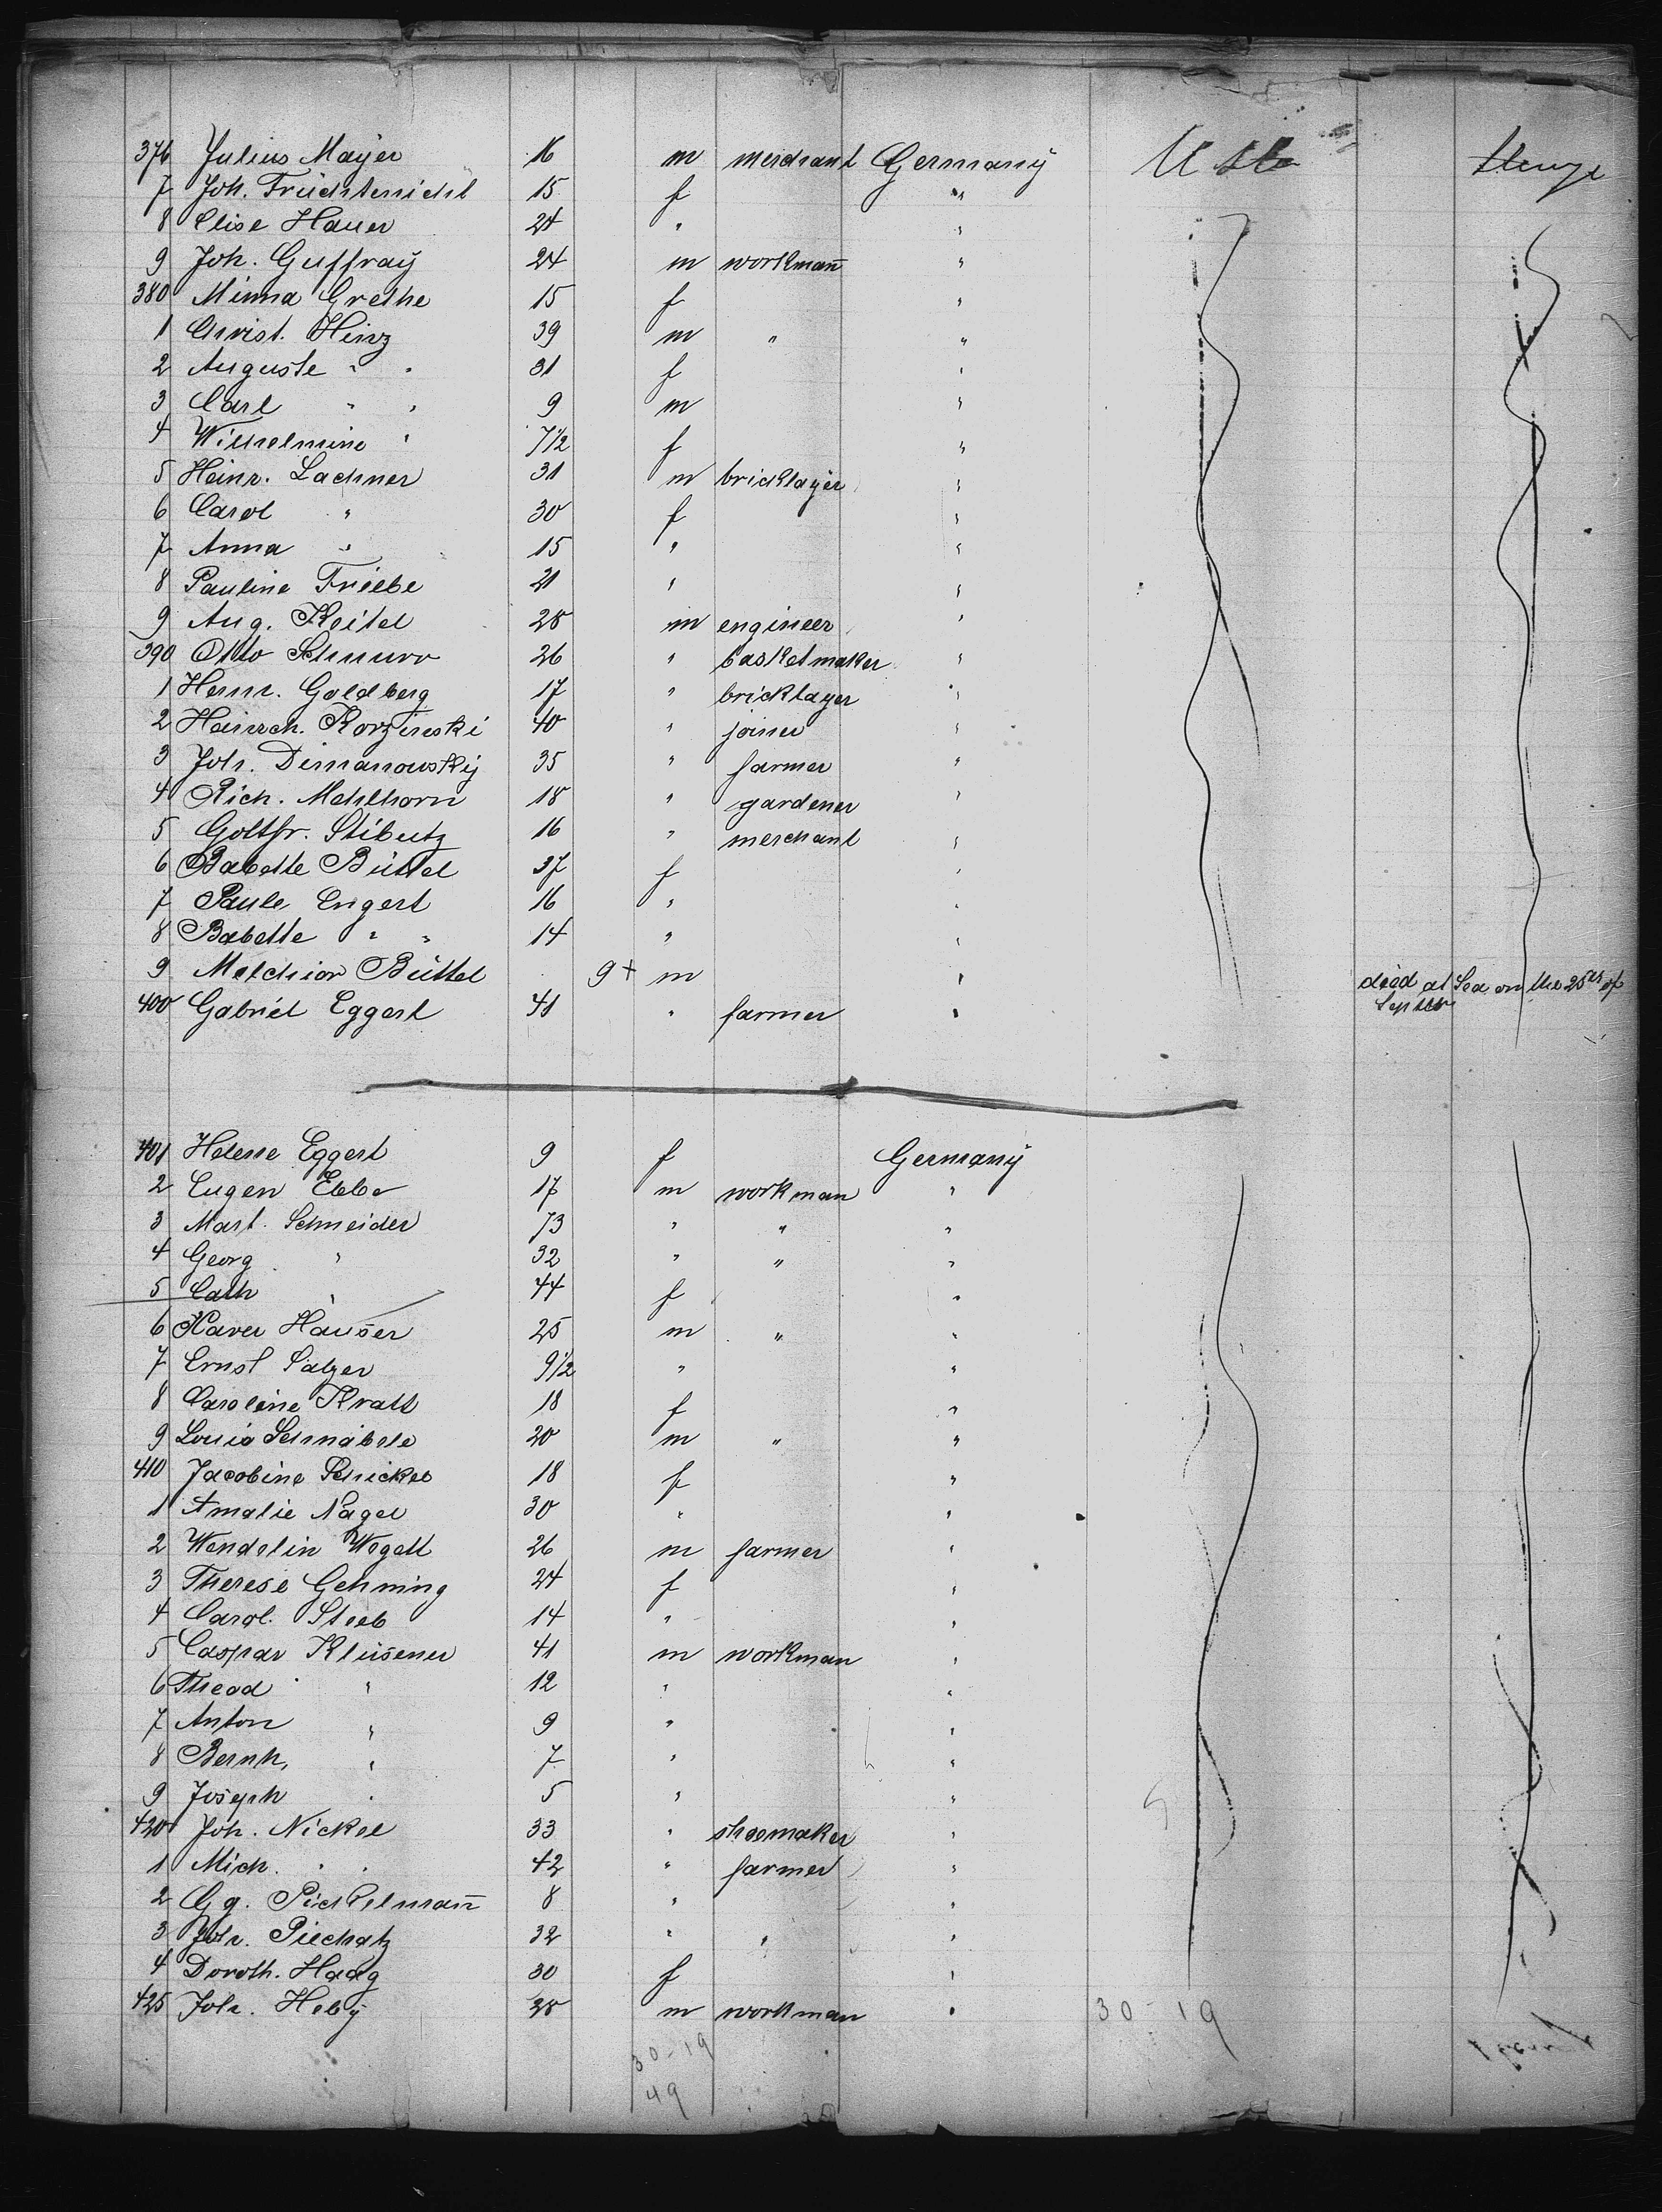 376 Julius Mayer 16 m merchant Germany U Sta Steerage
7 Joh. Früchtenicht 15 f "
8 Elise Hauer 24 " "
9 Joh. Guffray 24 m workmañ "
380 Minna Grethe 15 f "
1 Christ. Hinz 39 m " "
2 Auguste " " 31 f "
3 Carl " " 9 m "
4 Wilhelmine " 7 1/2 f "
5 Heinr. Lachner 31 m bricklayer "
6 Carol " 30 f "
7 Anna " 15 " "
8 Pauline Friebe 21 " "
9 Aug. Keitel 28 m engineer "
390 Otto Schnurr 26 " basketmaker "
1 Herm. Goldberg 17 " bricklayer "
2 Heinrch. Korzinski 40 " joiner "
3 Joh. Dimanowsky 35 " farmer "
4 Rich. Mehlhorn 18 " gardener "
5 Gottfr. Stibutz 16 " merchant "
6 Babette Büttel 37 f "
7 Paule Engert 16 " "
8 Babette " " 14 " "
9 Melchior Büttel 9 + m " died at Sea on the 25th of
Septbr
400 Gabriel Eggert 41 " farmer "
401 Helene Eggert 9 f Germany
2 Eugen Ebbe 17 m workman "
3 Mart. Schneider 73 " " "
4 Georg " 32 " " "
5 Cath " 44 f "
6 Xaver Hauser 25 m " "
7 Ernst Salzer 9 1/2 " "
8 Caroline Kratt 18 f "
9 Louis Schnabele 20 m " "
410 Jacobine Schickee 18 f "
1 Amalie Nagel 30 " "
2 Wendelin Wogatt 26 m farmer "
3 Therese Gehming 24 f "
4 Carol. Steeb 14 " "
5 Caspar Klüsener 41 m workman "
6 Thead " 12 " "
7 Anton " 9 " "
8 Bernh. " 7 " "
9 Joseph " 5 " "
420 Joh. Nickel 33 " shoemaker "
1 Mich. " " 42 " farmer "
2 Gg. Pickelmañ 8 " "
3 Joh. Piechatz 32 " " "
4 Doroth. Haag 30 f "
425 Joh. Heby 28 m workman " 30-19
30-19
49